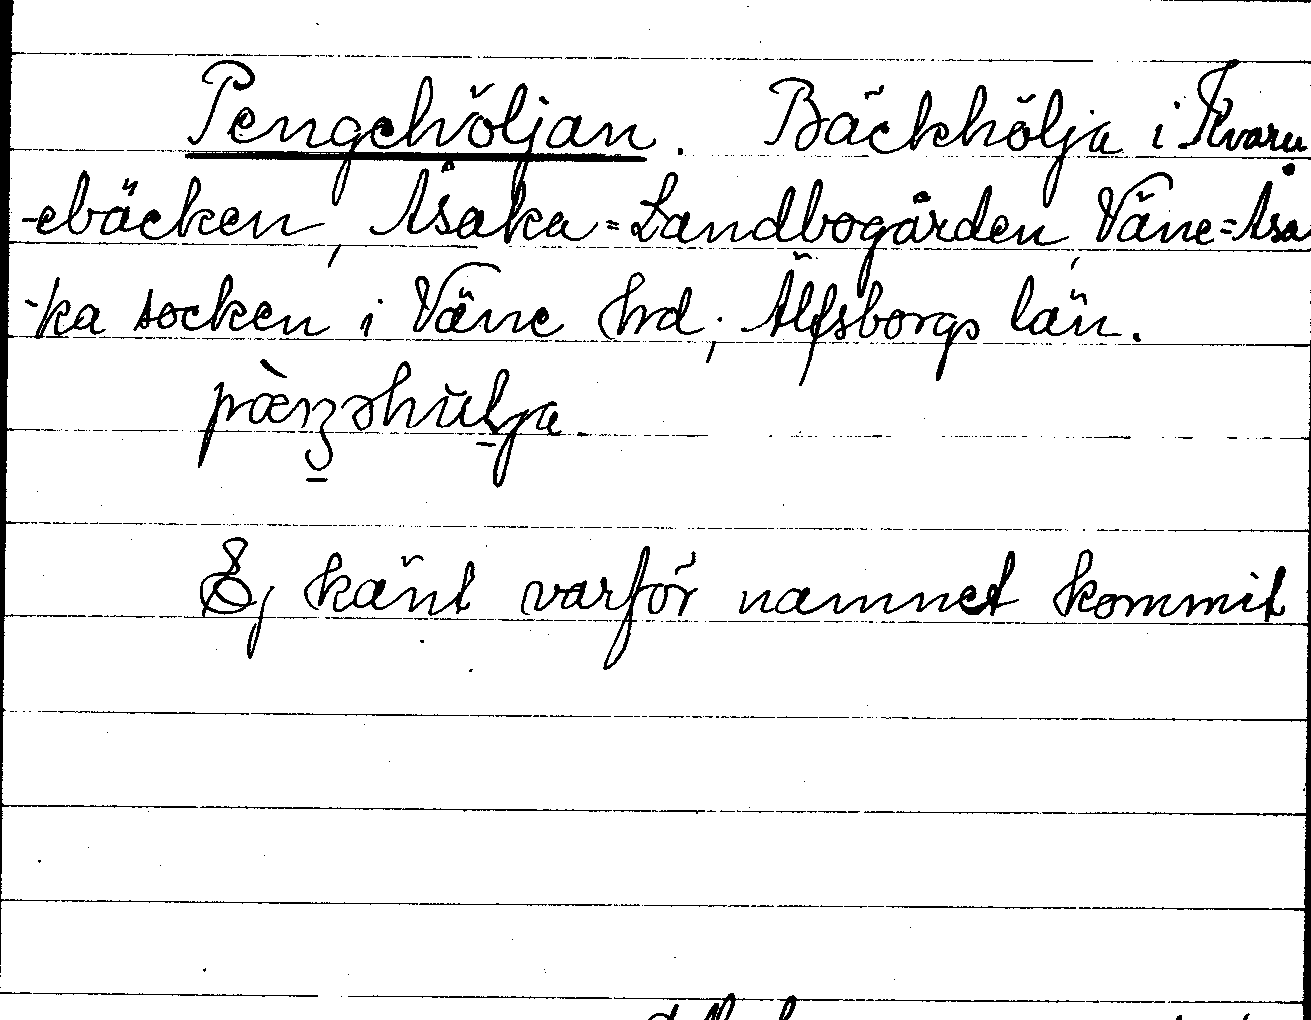 Pengehöljan. Bäckhölja i Kvarn
-ebäcken, Åsaka=Landbogården, Väne=Åsa
-ka socken i Väne hrd, Älfsborgs län.
Ej känt varför namnet kommit